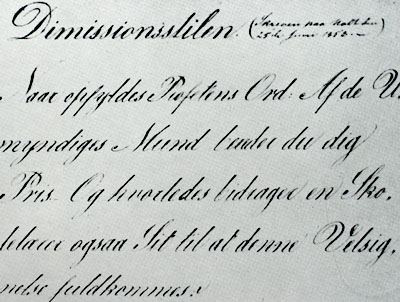 Dimissionsstilen. (Skreven paa Holt den
25de Juni 1850.—
Naar opfyldes Profetens Ord: Af de U-
myndiges Mund bereder du dig
Pris. Og hvorledes bidrager en Sko-
lelærer ogsaa Sit til at denne Velsig-
nelse fuldkommes?